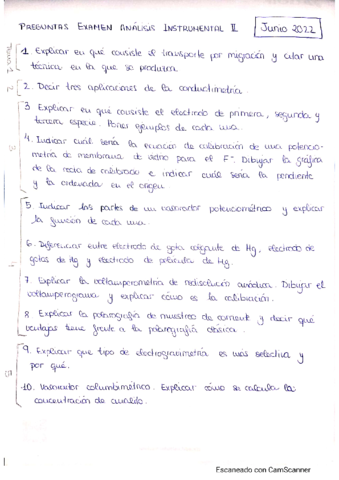 PREGUNTAS EXAMEN ANÁLISIS INSTRUMENTAL II Junio 2022
1. Explicar en qué consiste el transporte por migración y citar una
técnica en la que se produzca.
2. Decir tres aplicaciones de la conductimetría.
3. Explicar en qué consiste el electrodo de primera, segunda y
tercera especie. Pones ejemplos de cada uno.
4. Indicar cuál sería la ecuación de calibración de una potencio-
metría de membrana de vidrio para el F⁻. Dibujar la gráfica
de la recta de calibrado e indicar cuál sería la pendiente
y la ordenada en el origen.
5. Indicar las partes de un valorador potenciométrico y explicar
la función de cada una.
6. Diferenciar entre electrodo de gota colgante de Hg, electrodo de
gotas de Hg y electrodo de película de Hg.
7. Explicar la voltamperometría de redisolución anódica. Dibujar el
voltamperograma y explicar cómo es la calibración.
8 Explicar la polarografía de muestreo de corriente y decir qué
ventajas tiene frente a la polarografía clásica.
9. Explicar que tipo de electrogravimetría es más selectiva y
por qué.
10. Valorador culombimétrico. Explicar cómo se calcula la
concentración de analito.
Escaneado con CamScanner